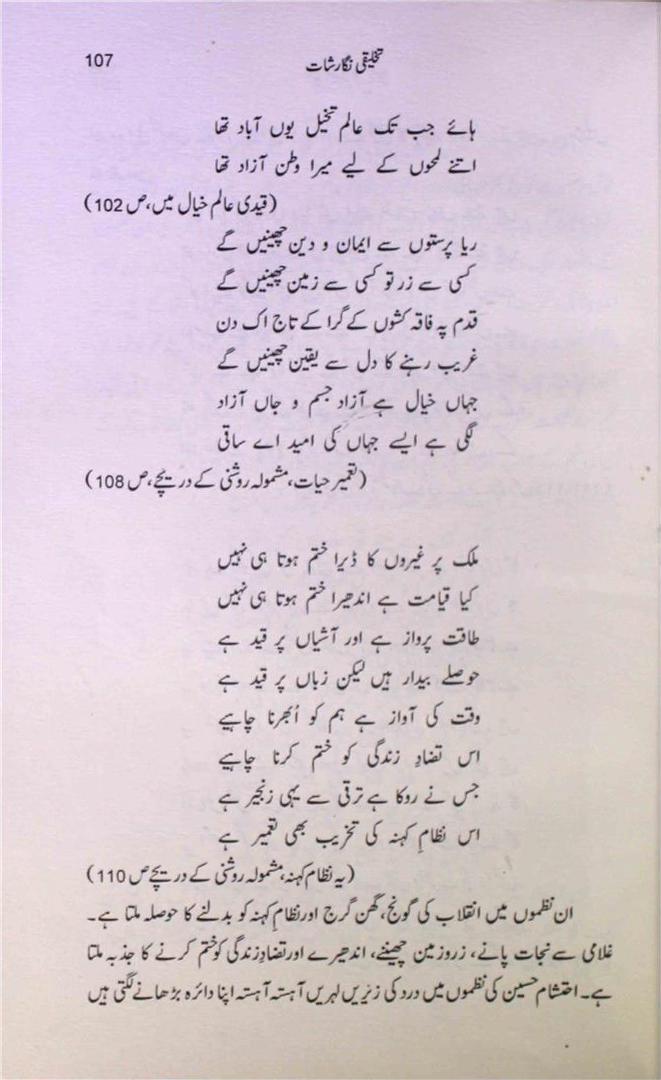 تخلیقی نگارشات
107
ہائے جب تک عالم تخیل یوں آباد تھا
اتنے لمحوں کے لیے میرا وطن آزاد تھا
(قیدی عالم خیال میں، ص 102)
ریا پرستوں سے ایمان و دین چھینیں گے
کسی سے زر تو کسی سے زمین چھینیں گے
قدم پہ فاقہ کشوں کے گرا کے تاج اک دن
غریب رہنے کا دل سے یقین چھینیں گے
جہاں خیال ہے آزاد جسم و جاں آزاد
لگی ہے ایسے جہاں کی امید اے ساقی
(تعمیر حیات، مشمولہ روشنی کے دریچے، ص 108)
ملک پر غیروں کا ڈیرا ختم ہوتا ہی نہیں
کیا قیامت ہے اندھیرا ختم ہوتا ہی نہیں
طاقت پرواز ہے اور آشیاں پر قید ہے
حوصلے بیدار ہیں لیکن زباں پر قید ہے
وقت کی آواز ہے ہم کو اُبھرنا چاہیے
اس تضادِ زندگی کو ختم کرنا چاہیے
جس نے روکا ہے ترقی سے یہی زنجیر ہے
اس نظامِ کہنہ کی تخریب بھی تعمیر ہے
(یہ نظام کہنہ، مشمولہ روشنی کے دریچے ص 110)
ان نظموں میں انقلاب کی گونج، گھن گرج اور نظامِ کہنہ کو بدلنے کا حوصلہ ملتا ہے۔
غلامی سے نجات پانے، زر و زمین چھیننے، اندھیرے اور تضادِ زندگی کو ختم کرنے کا جذبہ ملتا
ہے۔ احتشام حسین کی نظموں میں درد کی زیریں لہریں آہستہ آہستہ اپنا دائرہ بڑھانے لگتی ہیں